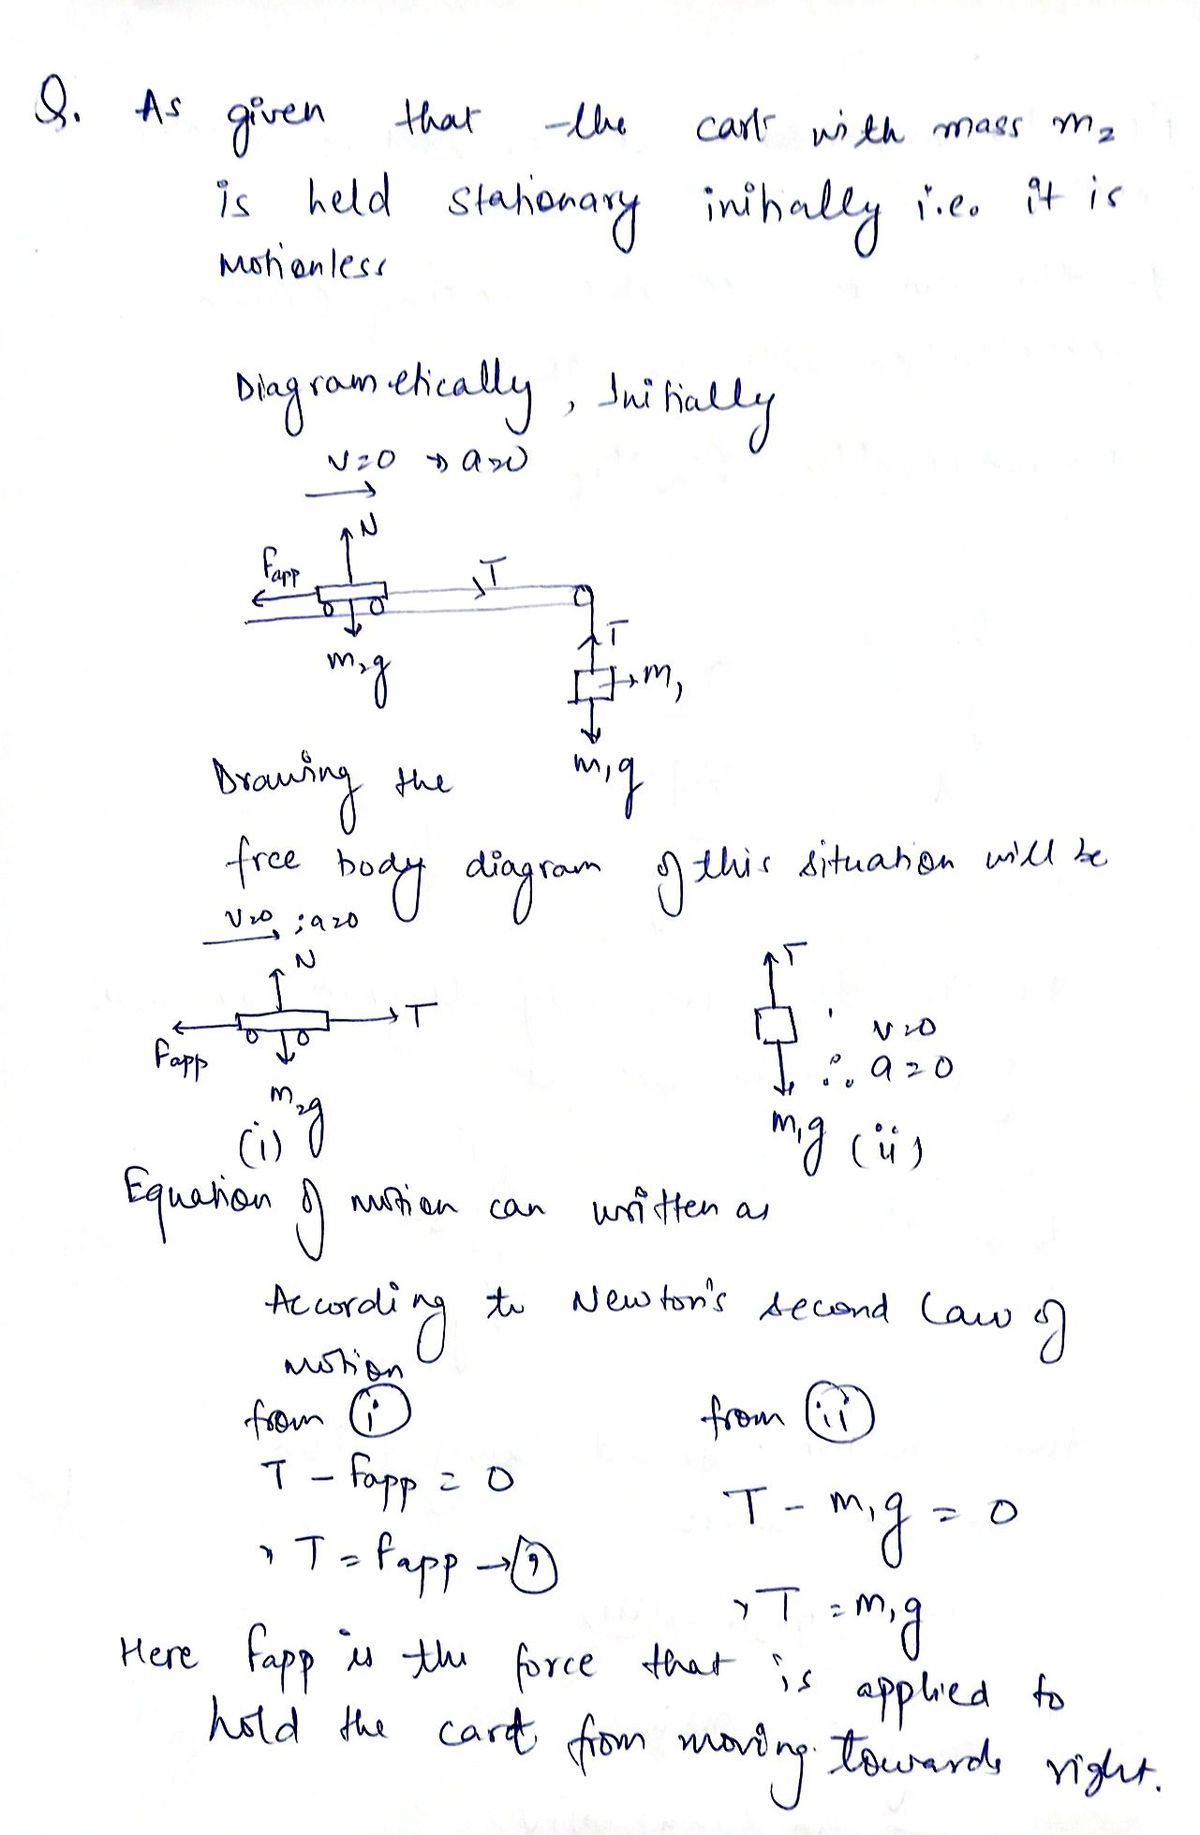 Q. As given that the cart with mass m₂
is held stationary initially i.e. it is
motionless
Diagrametically, Initially
v=0 → a=0
N
Fapp
T
T
m₂g
m₁
m₁g
Drawing the
free body diagram of this situation will be
v=0 ; a=0
N
T
Fapp
m₂g
(i)
T
v=0
∴ a=0
m₁g (ii)
Equation of motion can written as
According to Newton's second law of
motion
from (i) from (ii)
T - Fapp = 0 T - m₁g = 0
T = Fapp → T = m₁g
Here Fapp is the force that is applied to
hold the cart from moving towards right.